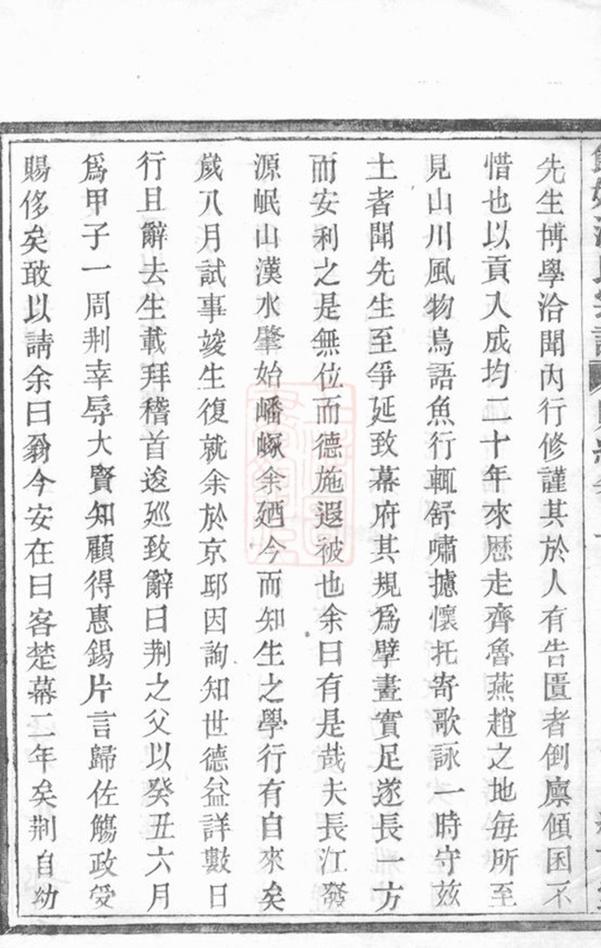 先生博學洽聞內行修謹其於人有告匱者倒廩傾囷不
惜也以貢入成均二十年來歷走齊魯燕趙之地每所至
見山川風物鳥語魚行輒舒嘯攄懷托寄歌詠一時守茲
土者聞先生至爭延致幕府其規爲擘畫實足遂長一方
而安利之是無位而德施遐被也余曰有是哉夫長江發
源岷山漢水肇始嶓冢余廼今而知生之學行有自來矣
歲八月試事竣生復就余於京邸因詢知世德益詳數日
行且辭去生載拜稽首逡廵致辭曰荆之父以癸丑六月
爲甲子一周荆幸辱大賢知顧得惠錫片言歸佐觴政受
賜侈矣敢以請余曰翁今安在曰客楚幕二年矣荆自幼